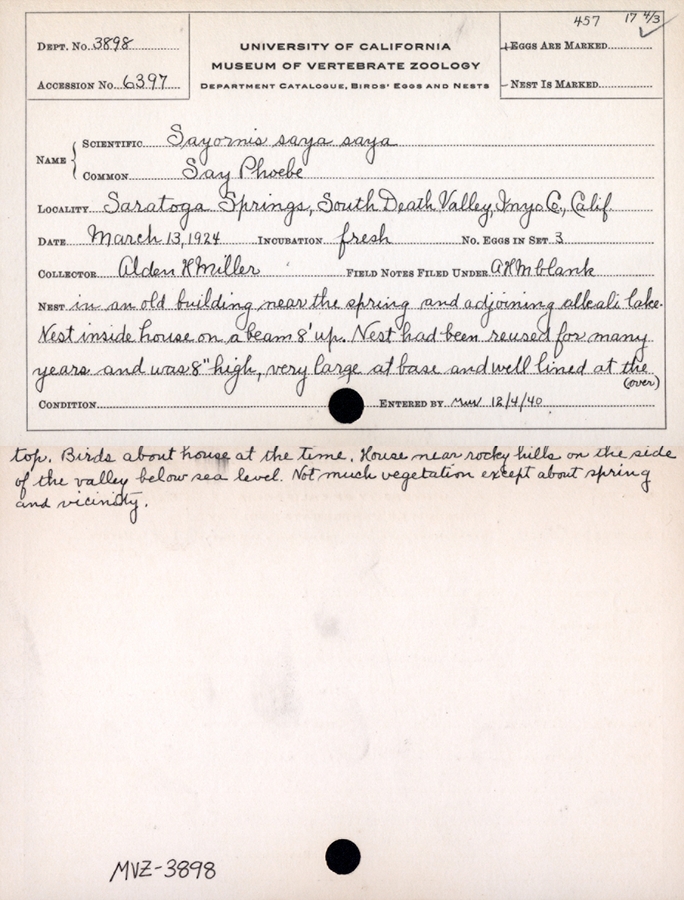 457 17 4/3 ✓
DEPT. NO. 3898
UNIVERSITY OF CALIFORNIA
MUSEUM OF VERTEBRATE ZOOLOGY
DEPARTMENT CATALOGUE, BIRDS' EGGS AND NESTS
+EGGS ARE MARKED
ACCESSION NO. 6397
NEST IS MARKED
NAME { SCIENTIFIC Sayornis saya saya
COMMON Say Phoebe
LOCALITY Saratoga Springs, South Death Valley, Inyo Co., Calif.
DATE March 13, 1924 INCUBATION fresh NO. EGGS IN SET 3
COLLECTOR Alden H Miller FIELD NOTES FILED UNDER AHM blank
NEST in an old building near the spring and adjoining alkali lake.
Nest inside house on a beam 8' up. Nest had been reused for many
years and was 8" high, very large at base and well lined at the
(over)
CONDITION ENTERED BY 12/4/40
top. Birds about house at the time. House near rocky hills on the side
of the valley below sea level. Not much vegetation except about spring
and vicinity.
MVZ-3898